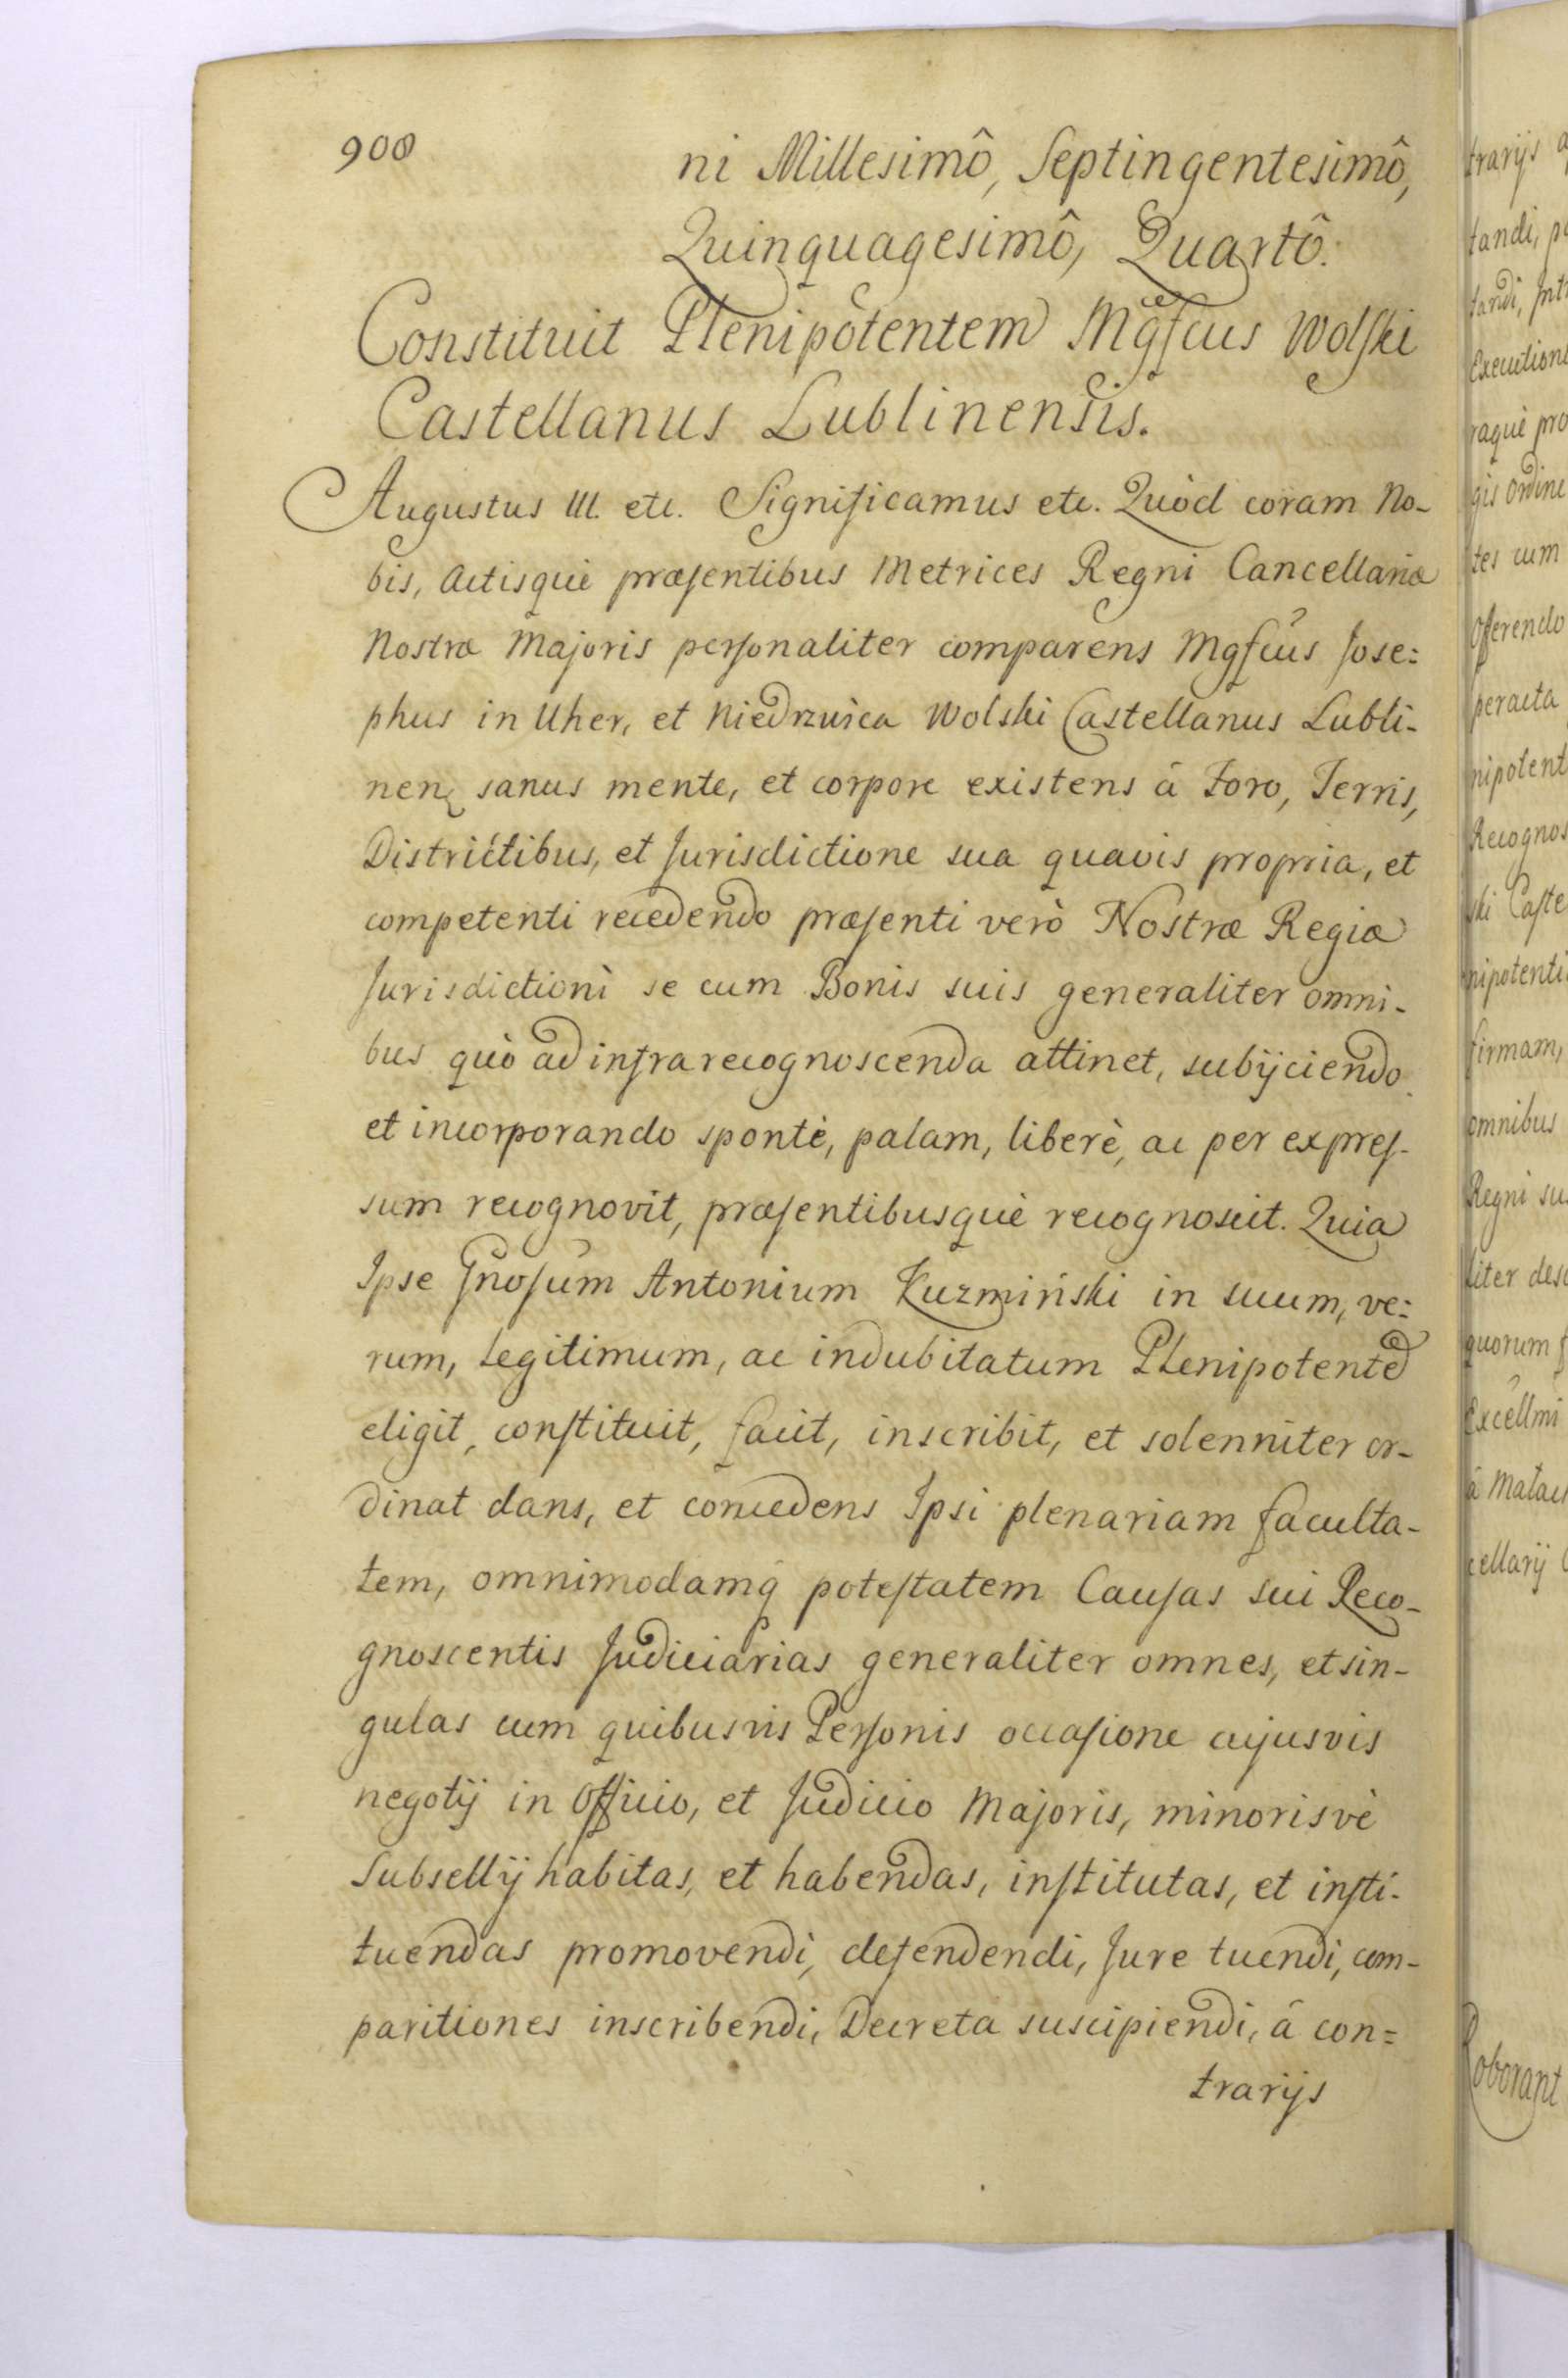 908
ni Millesimô, Septingentesimô,
Quinquagesimô, Quartô.
Constituit Plenipotentem Mgfcus Wolski
Castellanus Lublinensis.
Augustus III. etc. Significamus etc. Quòd coram No-
bis, Actisquè præsentibus Metrices Regni Cancellariæ
Nostræ Majoris personaliter comparens Mgfcus Jose=
phus in Uher, et Niedrzwica Wolski Castellanus Lubli-
nen sanus mente, et corpore existens â Foro, Terris,
Districtibus, et Jurisdictione sua quavis propria, et
competenti recedendo præsenti verò Nostræ Regiæ
Jurisdictioni se cum Bonis suis generaliter omni-
bus quò ad infrarecognoscenda attinet, subijciendo
et incorporando spontè, palam, liberè, ac per expres-
sum recognovit, præsentibusquè recognoscit. Quia
Ipse Gnosum Antonium Kuzmiński in suum, ve=
rum, legitimum, ac indubitatum Plenipotentem
eligit, constituit, facit, inscribit, et solenniter or-
dinat dans, et concedens Ipsi plenariam faculta-
tem, omnimodamq potestatem Causas sui Reco-
gnoscentis Judiciarias generaliter omnes, et sin-
gulas cum quibusvis Personis occasione cujusvis
negotij in Officio, et Judicio Majoris, minorisvè
Subsellij habitas, et habendas, institutas, et insti-
tuendas promovendi, defendendi, Jure tuendi, com-
paritiones inscribendi, Decreta suscipiendi, â con=
trarijs
trarijs
tandi,
Executione
raquè pro
gis ordine
tes cum
Offerendo
peracta
nipotent
Recognos
ski Caste
nipotenti
firmam,
omnibus
Regni su
liter desc
quorum
Excellmi
â Malac
cellarij
Roborant